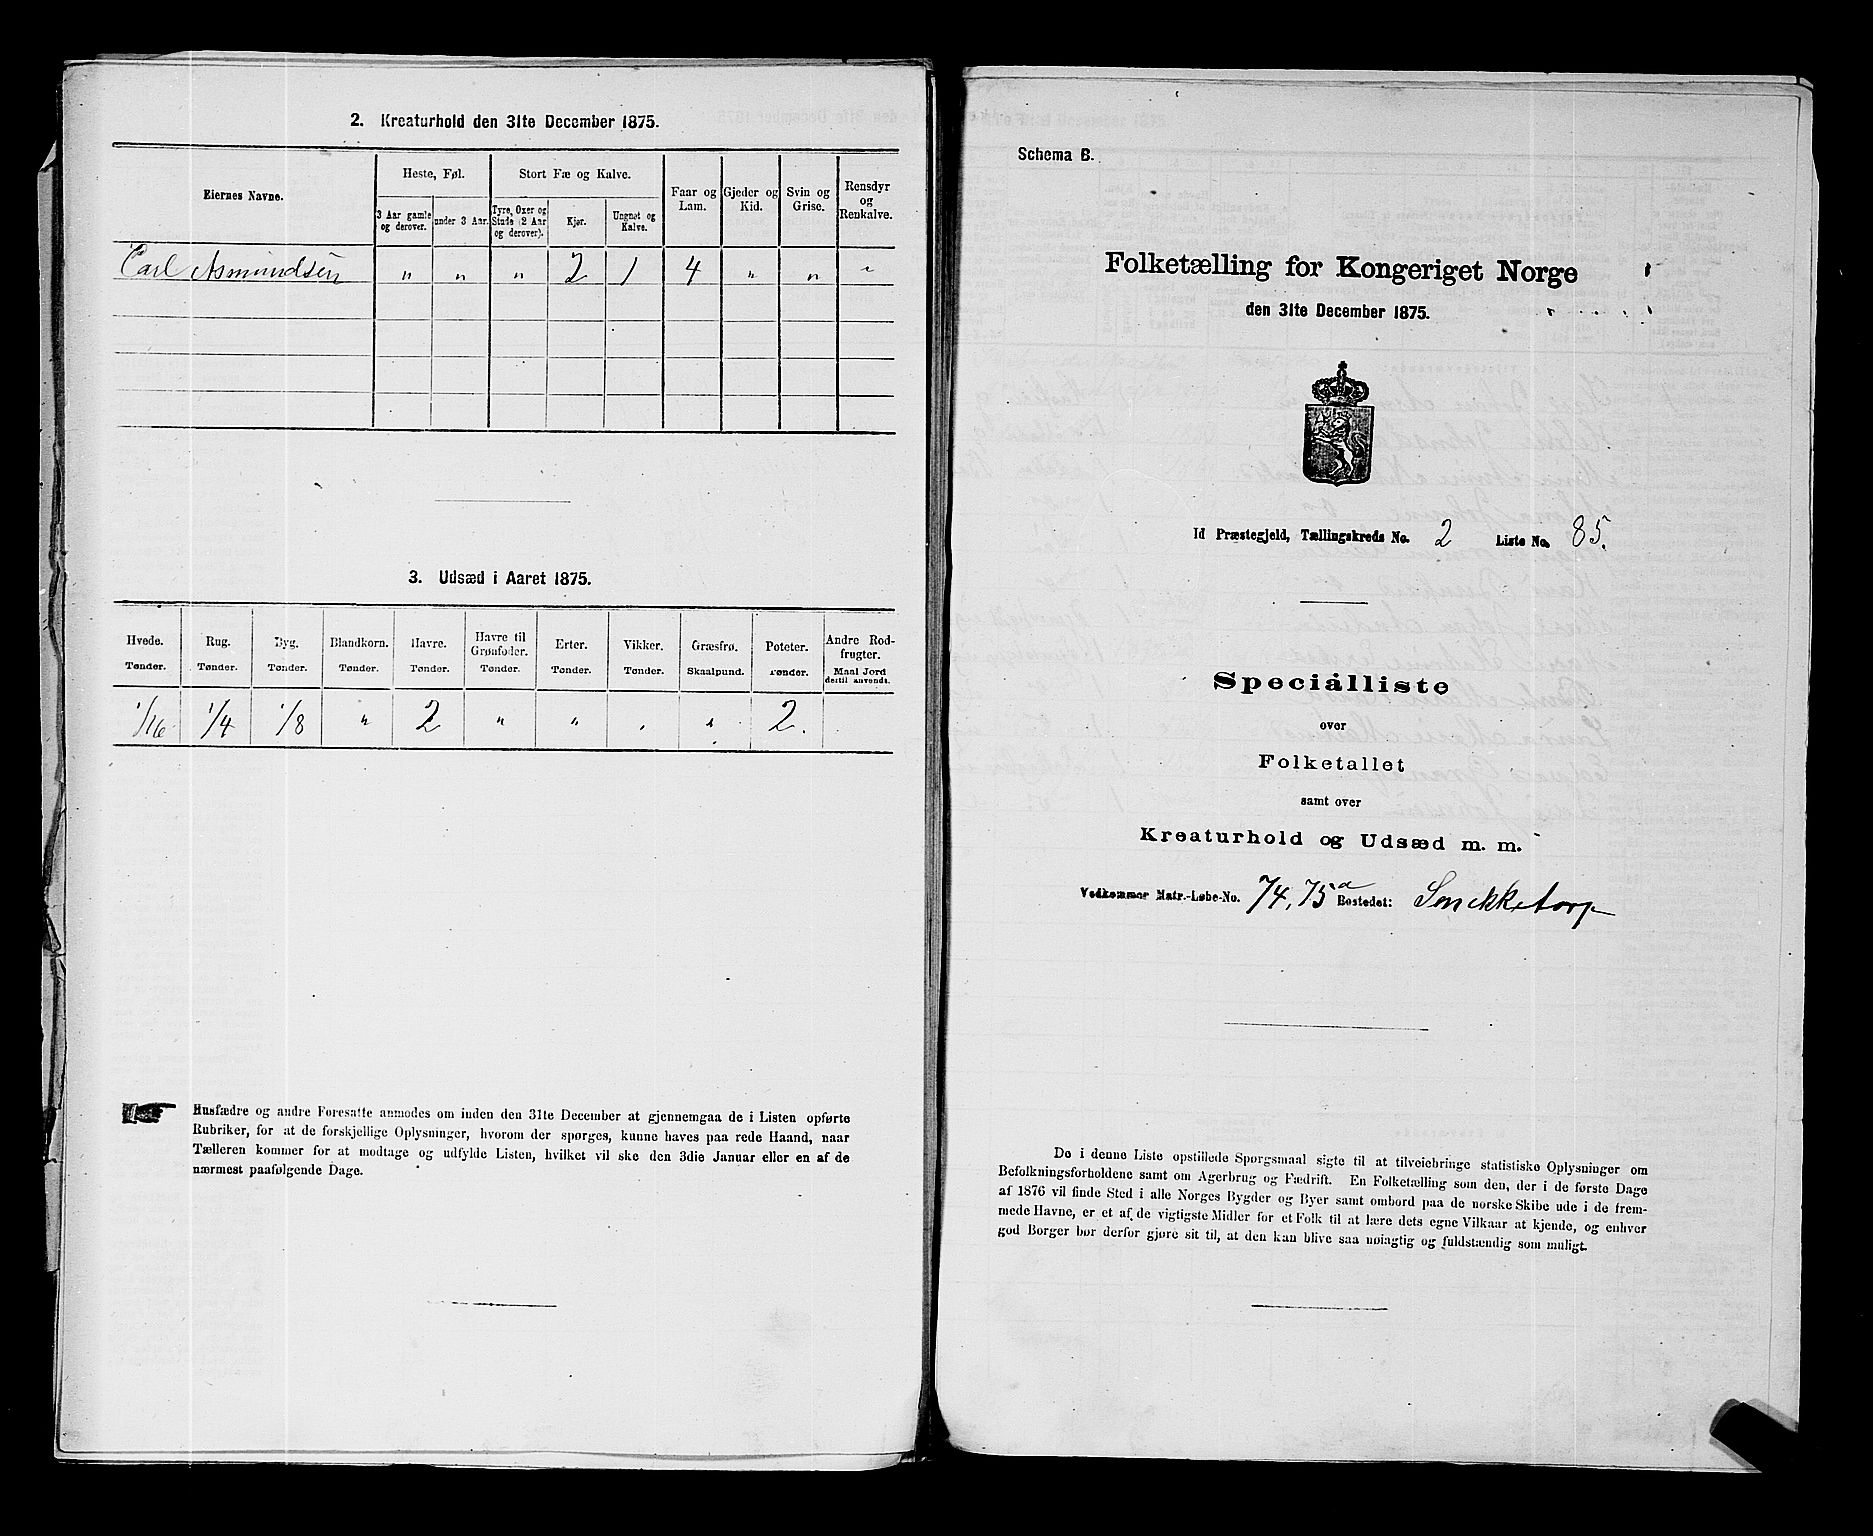 2. Kreaturhold den 31te December 1875.
Eiernes Navne.
Heste, Føl.
Stort Fæ og Kalve.
Faar og Lam.
Gjeder og Kid.
Svin og Grise.
Rensdyr og Renkalve.
3 Aar gamle og derover.
under 3 Aar.
Tyre, Oxer og Stude (2 Aar og derover).
Kjør.
Ungnøt og Kalve.
Carl Asmundsen " " " 2 1 4 " " "
3. Udsæd i Aaret 1875.
Hvede. Rug. Byg. Blandkorn. Havre. Havre til Grønfoder. Erter. Vikker. Græsfrø. Poteter. Andre Rodfrugter.
Tønder. Tønder. Tønder. Tønder. Tønder. Tønder. Tønder. Tønder. Skaalpund. Tønder. Maal Jord dertil anvendt.
1/16 1/4 1/8 " 2 " " " " 2.
Husfædre og andre Foresatte anmodes om inden den 31te December at gjennemgaa de i Listen opførte
Rubriker, for at de forskjellige Oplysninger, hvorom der spørges, kunne haves paa rede Haand, naar
Tælleren kommer for at modtage og udfylde Listen, hvilket vil ske den 3die Januar eller en af de
nærmest paafølgende Dage.
Schema B.
Folketælling for Kongeriget Norge
den 31te December 1875.
Id Præstegjeld, Tællingskreds No. 2 Liste No. 85.
Specialliste
over
Folketallet
samt over
Kreaturhold og Udsæd m. m.
Vedkommer Matr.-Løbe-No. 74, 75a Bostedet: Snekketorp
De i denne Liste opstillede Spørgsmaal sigte til at tilveiebringe statistiske Oplysninger om
Befolkningsforholdene samt om Agerbrug og Fædrift. En Folketælling som den, der i de første Dage
af 1876 vil finde Sted i alle Norges Bygder og Byer samt ombord paa de norske Skibe ude i de frem-
mede Havne, er et af de vigtigste Midler for et Folk til at lære dets egne Vilkaar at kjende, og enhver
god Borger bør derfor gjøre sit til, at den kan blive saa nøiagtig og fuldstændig som muligt.